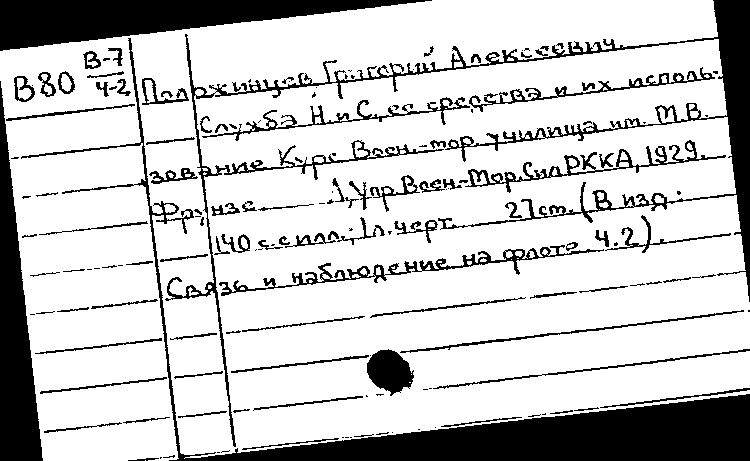 В80 В-7
4-2
Положинцев Григорий Алексеевич.
Служба Н. и С., ее средства и их исполь-
зование Курс Воен.-мор. училища им. М.В.
Фрунзе. Упр. Воен.-Мор. Сил РККА, 1929.
140 с. с илл.; 1 л. черт. 27 cm. (В изд.:
Связь и наблюдение на флоте. Ч. 2).